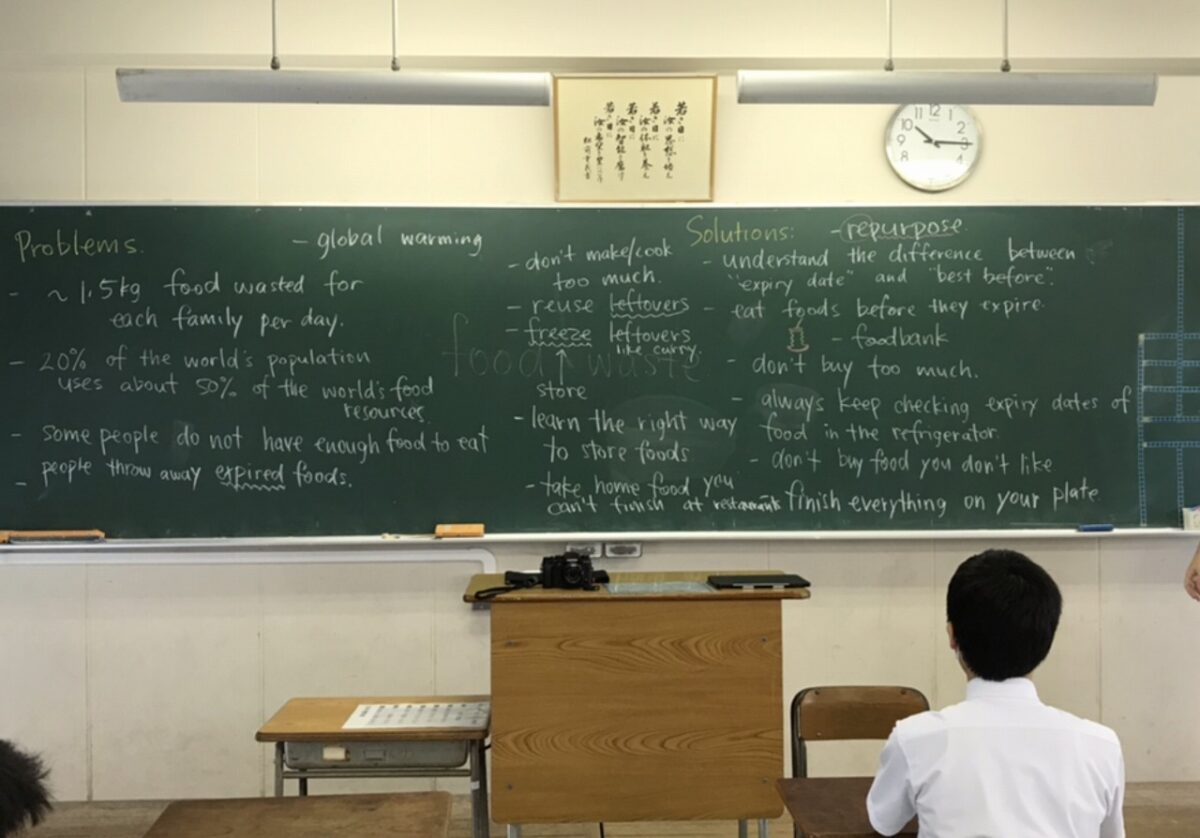 若き日に
汝の思想を培え
若き日に
汝の体躯を養え
若き日に
汝の智能を磨け
若き日に
汝の希望を星につなげ
松前重義書
11 12 1
10 2
9
8 4
Problems.
- global warming
- ~1.5kg food wasted for
each family per day.
- 20% of the world's population
uses about 50% of the world's food
resources
- some people do not have enough food to eat
- people throw away expired foods.
food waste
- don't make/cook
too much.
- reuse leftovers
- freeze leftovers
like curry.
store
- learn the right way
to store foods
- take home food you
can't finish at restaurants
Solutions:
- repurpose
- understand the difference between
"expiry date" and "best before".
- eat foods before they expire.
- foodbank
- don't buy too much.
- always keep checking expiry dates of
food in the refrigerator.
- don't buy food you don't like
finish everything on your plate